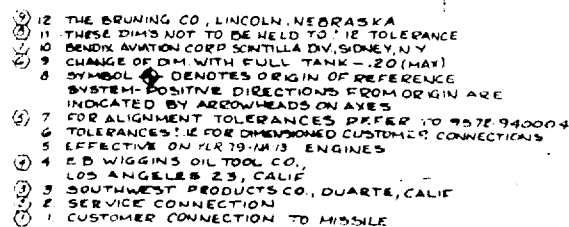 (9) 12 THE BRUNING CO, LINCOLN, NEBRASKA
(8) 11 THESE DIM'S NOT TO BE HELD TO ±.12 TOLERANCE
10 BENDIX AVIATION CORP SCINTILLA DIV, SIDNEY, N Y
(6) 9 CHANGE OF DIM. WITH FULL TANK - .20 (MAX)
8 SYMBOL DENOTES ORIGIN OF REFERENCE
SYSTEM - POSITIVE DIRECTIONS FROM ORIGIN ARE
INDICATED BY ARROWHEADS ON AXES
(5) 7 FOR ALIGNMENT TOLERANCES REFER TO 9572-940004
6 TOLERANCES ±.12 FOR DIMENSIONED CUSTOMER CONNECTIONS
5 EFFECTIVE ON YLR79-NA13 ENGINES
(4) 4 E B WIGGINS OIL TOOL CO.,
LOS ANGELES 23, CALIF
(3) 3 SOUTHWEST PRODUCTS CO., DUARTE, CALIF
(2) 2 SERVICE CONNECTION
(1) 1 CUSTOMER CONNECTION TO MISSILE